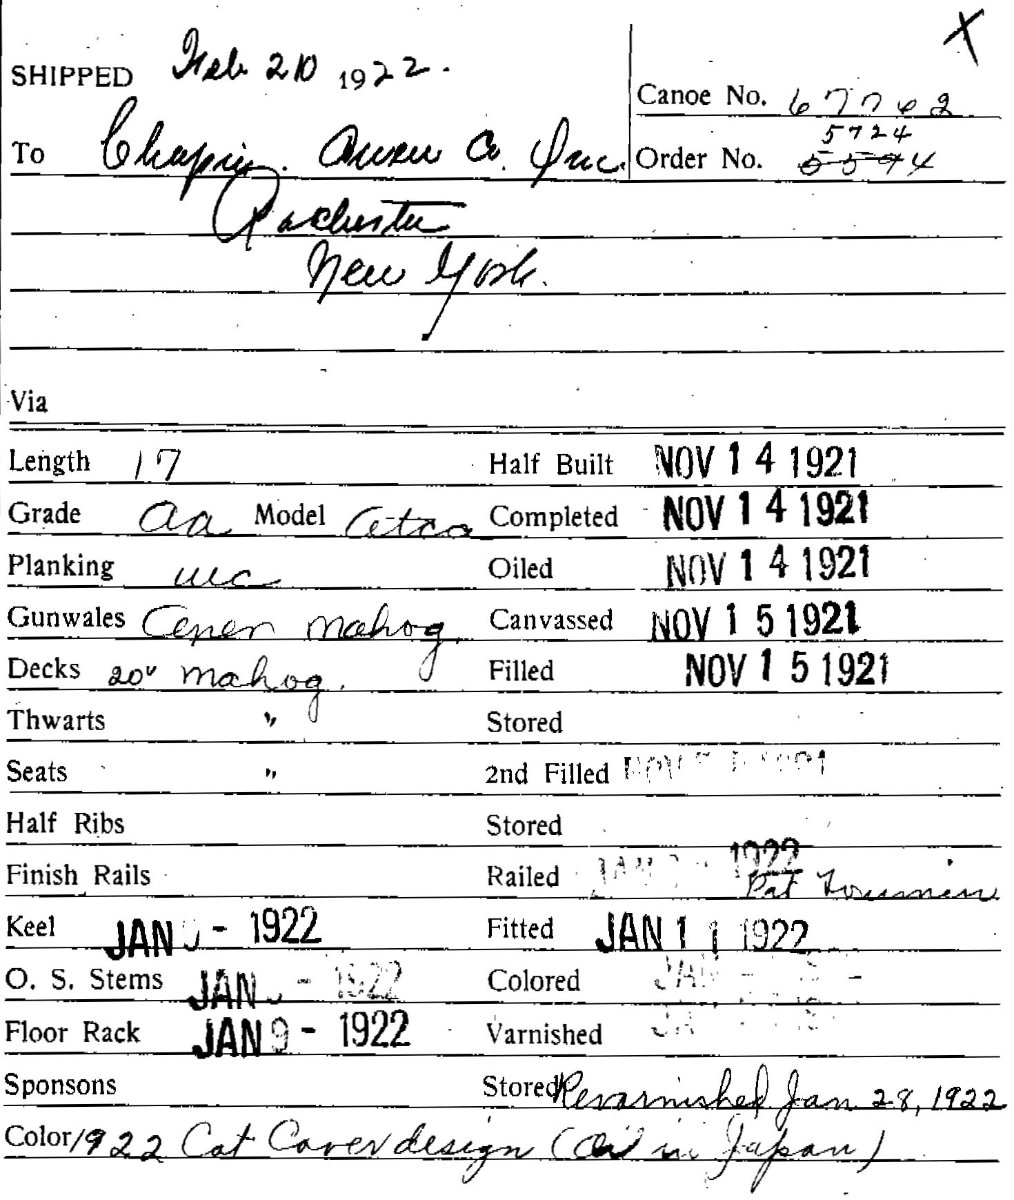 X
SHIPPED Feb. 20 1922.
Canoe No. 67762
To Chapin. Owen Co. Inc. Order No. 5594 5724
Rochester
New York.
Via
Length 17 Half Built NOV 14 1921
Grade aa Model Otca Completed NOV 14 1921
Planking wc Oiled NOV 14 1921
Gunwales Open mahog. Canvassed NOV 15 1921
Decks 20" mahog. Filled NOV 15 1921
Thwarts " Stored
Seats " 2nd Filled NOV 1921
Half Ribs Stored
Finish Rails Railed JAN 1922
Pat
Keel JAN 9 - 1922 Fitted JAN 11 1922
O. S. Stems JAN 9 - 1922 Colored JAN
Floor Rack JAN 9 - 1922 Varnished JA
Sponsons Stored Revarnished Jan 28, 1922
Color 1922 Cat Cover design (Oil in Japan)